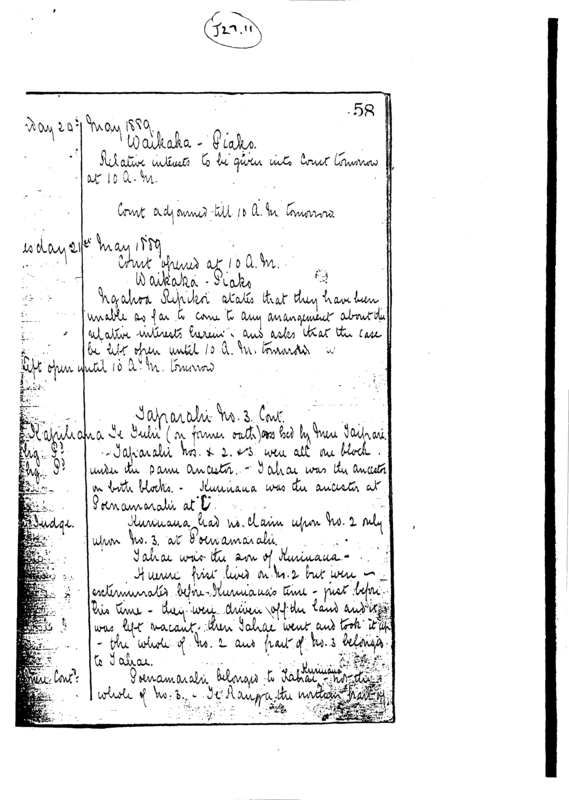 J27.11
58
day 20th May 1889
Waikaka - Piako.
Relative interests to be given into Court tomorrow
at 10 A.M.
Court adjourned till 10 A.M. tomorrow
esday 21st May 1889
Court opened at 10 A.M.
Waikaka - Piako
Ngahoa states that they have been
unable so far to come to any arrangement about the
relative interests herein - and asks that the case
be left open until 10 A.M. tomorrow
left open until 10 A.M. tomorrow
Taparahi No. 3. Cont.
Te (on former oath) by Mere Taipari
- Taparahi Nos. & 2. & 3 were all one block.
under the same ancestor. - Tahae was the ancestor
on both blocks. - Kuriuaua was the ancestor at
at C
Judge. Kuriuaua had no claim upon No. 2 only
upon No. 3 at
Tahae was the son of Kuriuaua -
first lived on No. 2 but were
exterminated before Kuriuaua's time - just before
his time - they were driven off the land and it
was left vacant. then Tahae went and took it up
- the whole of No. 2 and part of No. 3 belongs
to Tahae.
Cont'd: belonged to Tahae Kuriuaua - not the
whole of No. 3. - Te the northern part